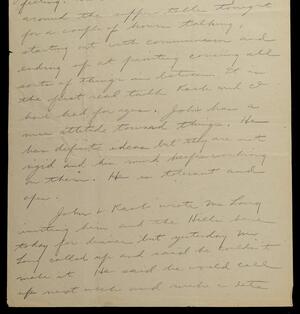 around the supper table tonight
for a couple of hours talking,
starting out with communism and
ending up at painting covering all
sorts of things in between. It is
the first real talk Karl and I
have had for ages. John has a
nice attitude toward things. He
has definite ideas but they are not
rigid and his mind keeps working
on them. He is tolerant and
open.
John & Karl wrote Mr Long
inviting him and the Hills here
today for dinner but yesterday Mr
Long called up and said he couldn't
make it. He said he would call
up next week and make a date